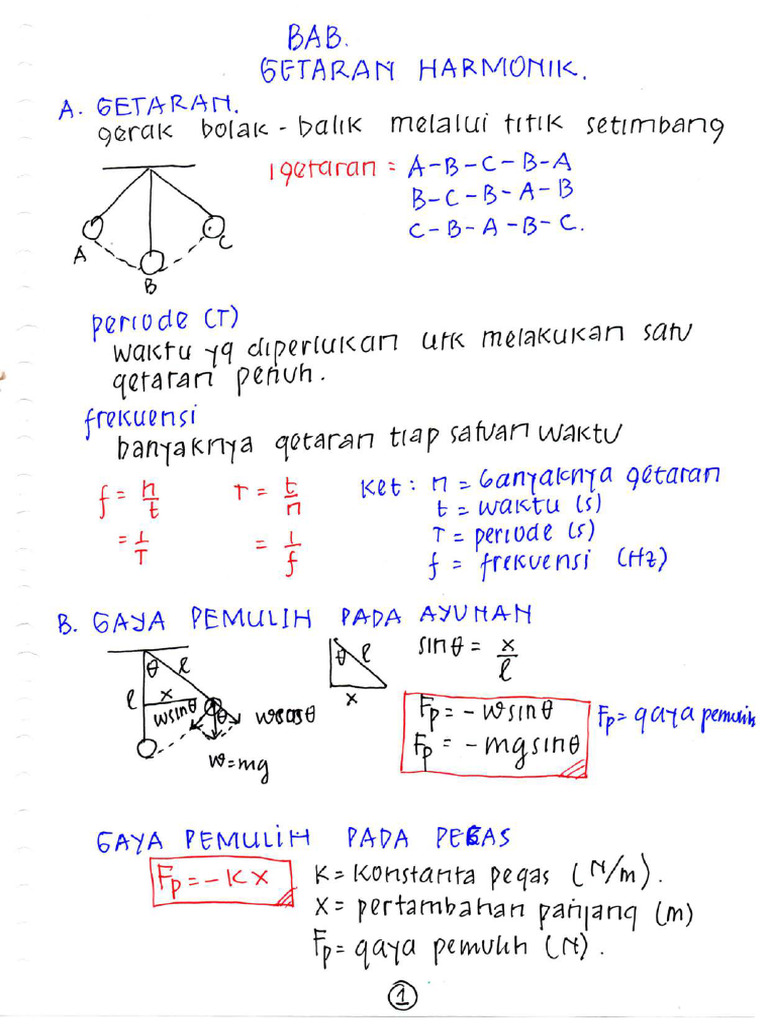 BAB.
GETARAN HARMONIK.
A. GETARAN.
gerak bolak-balik melalui titik setimbang
1 getaran = A-B-C-B-A
B-C-B-A-B
C-B-A-B-C.
A
B
C
periode (T)
waktu yg diperlukan utk melakukan satu
getaran penuh.
frekuensi
banyaknya getaran tiap satuan waktu
f = n/t
T = t/n
= 1/T
= 1/f
Ket : n = banyaknya getaran
t = waktu (s)
T = periode (s)
f = frekuensi (Hz)
B. GAYA PEMULIH PADA AYUNAN
θ
l
l
x
w sin θ
θ
w cos θ
w = mg
θ
l
x
sin θ = x/l
Fp = - w sin θ
Fp = - mg sin θ
Fp = gaya pemulih
GAYA PEMULIH PADA PEGAS
Fp = - K x
K = Konstanta pegas (N/m).
x = pertambahan panjang (m)
Fp = gaya pemulih (N).
1